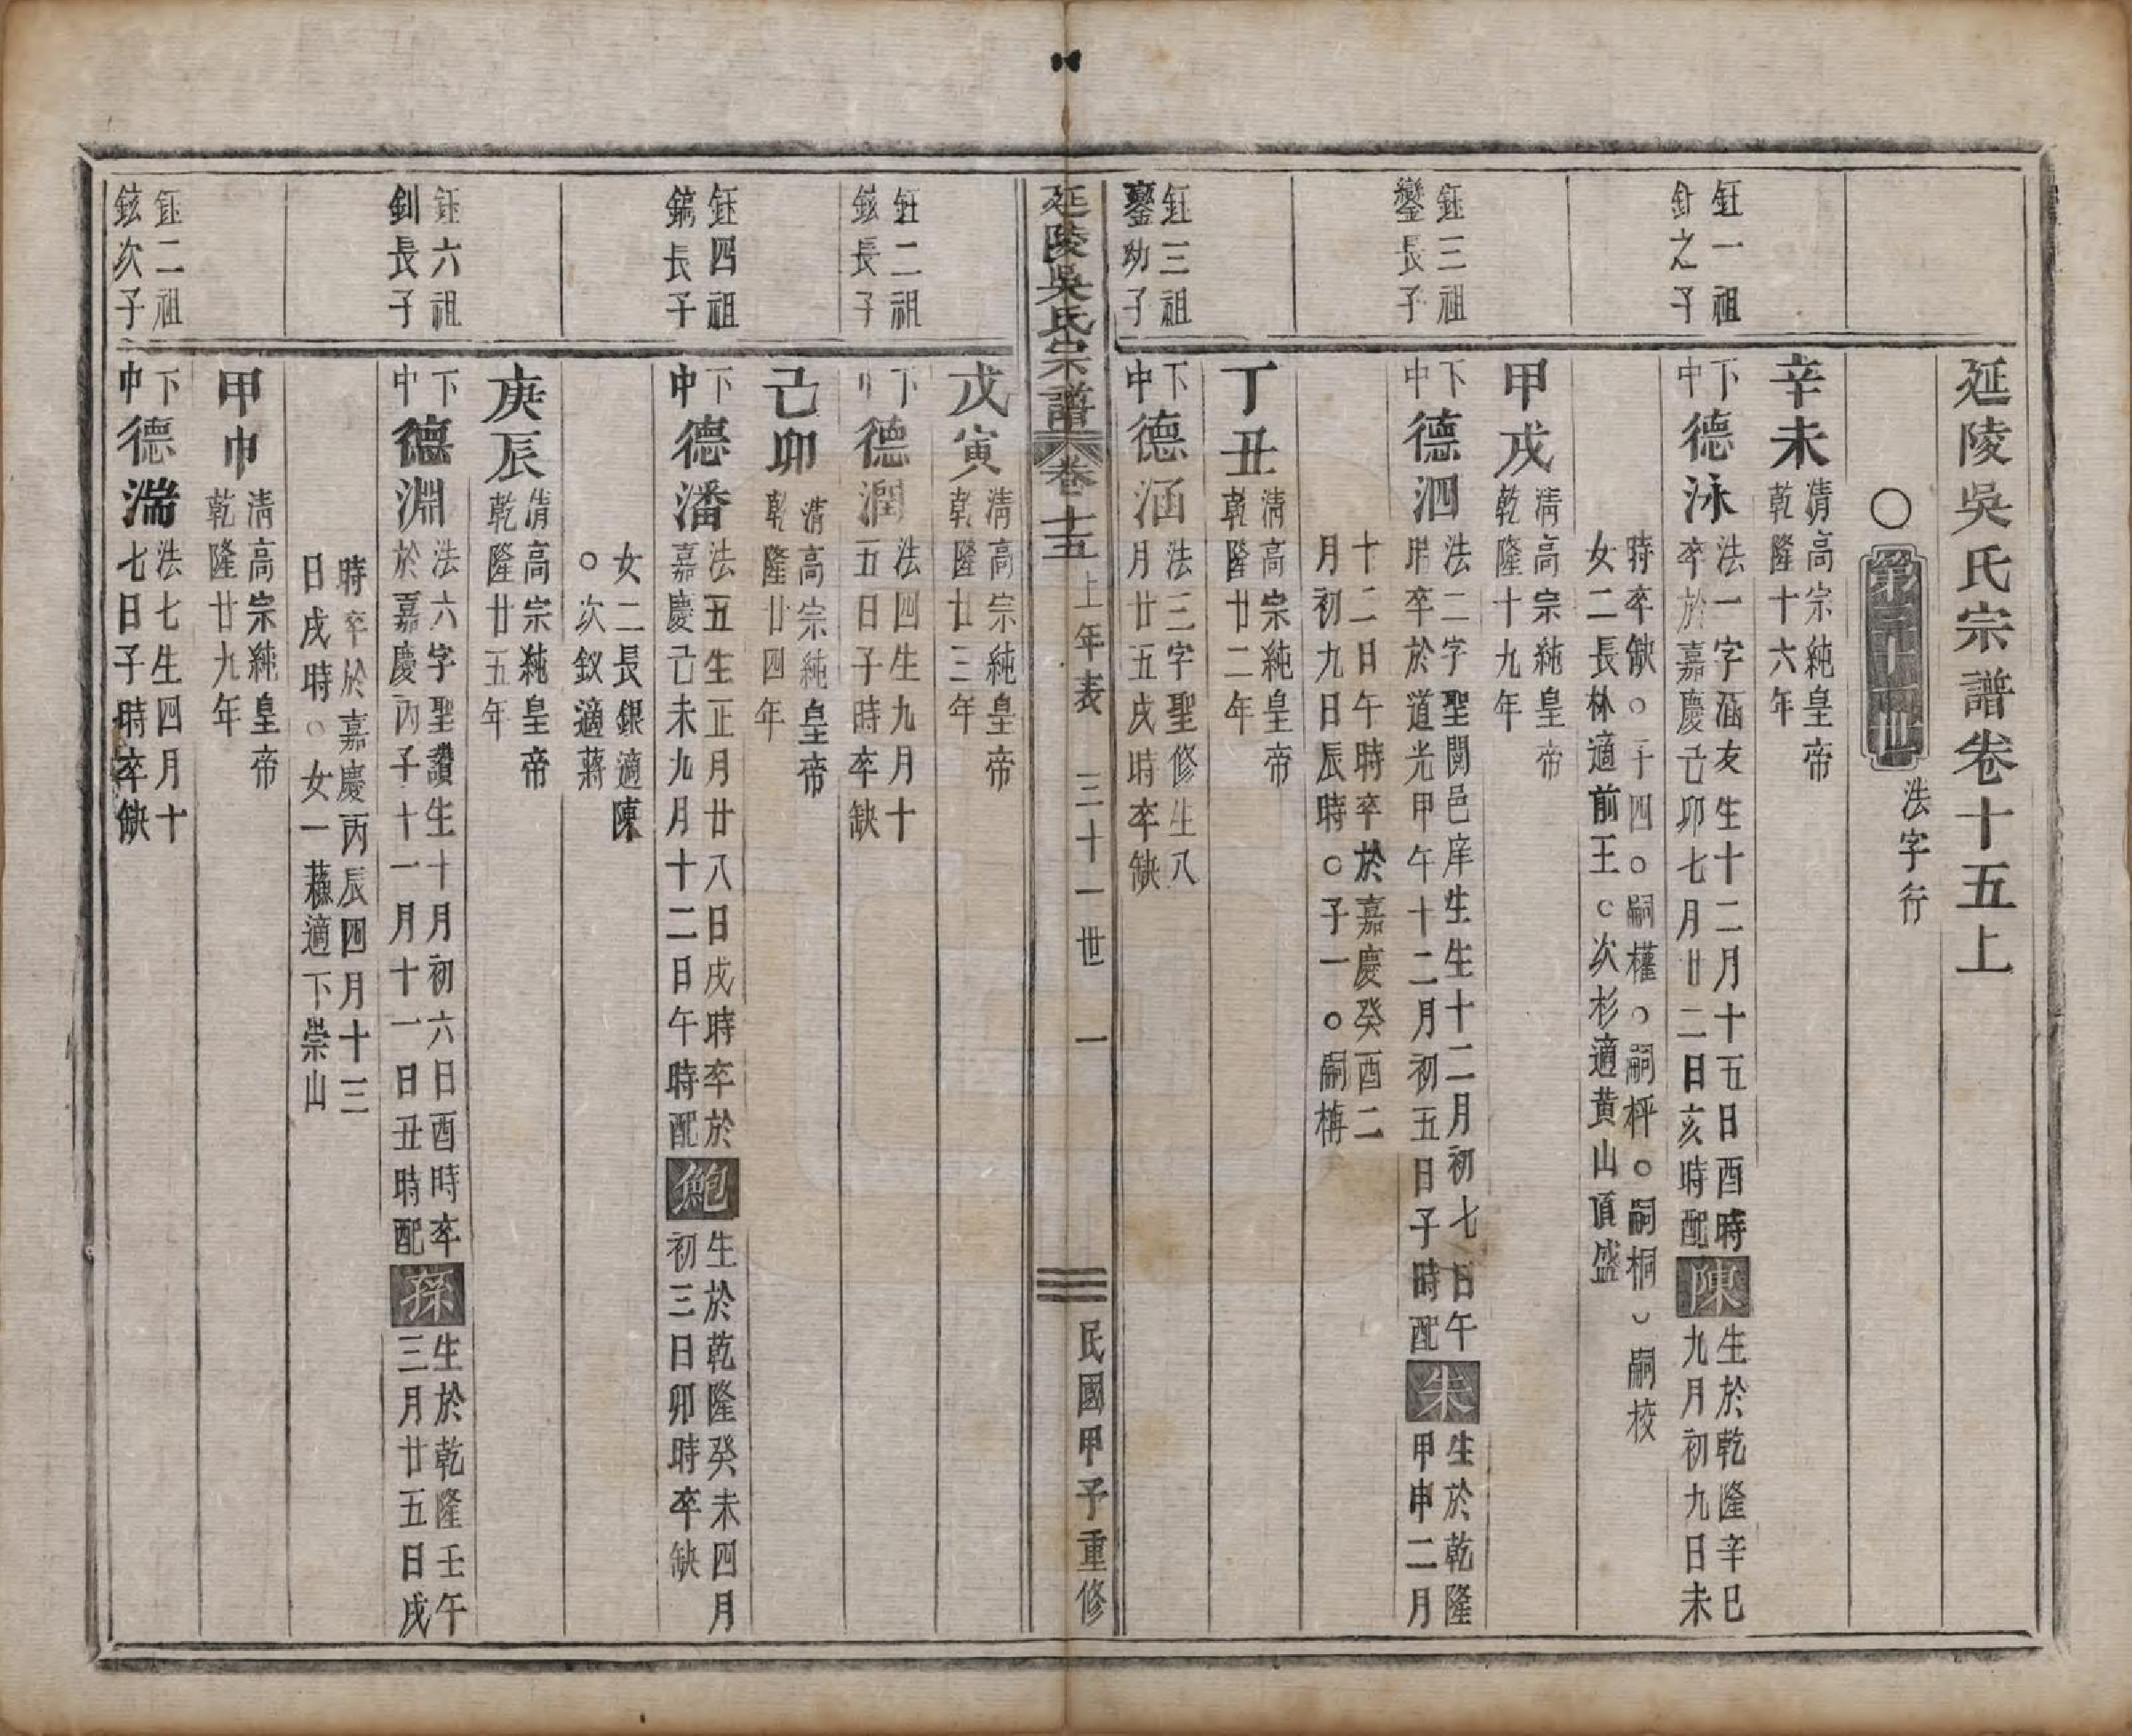 延陵吳氏宗譜卷十五上
○第三十一世 法字行
辛未 清高宗純皇帝
乾隆十六年
鈺一祖
針之子
下中 德泳 法一字涵友生十二月十五日酉時
卒於嘉慶己卯七月廿二日亥時配陳生於乾隆辛巳
九月初九日未
時卒缺○子四○嗣權○嗣枰○嗣桐○嗣校
女二長林適前王○次杉適黃山頂盛
甲戌 清高宗純皇帝
乾隆十九年
鈺三祖
鑾長子
下中 德泗 法二字聖開邑庠生生十二月初七日午
時卒於道光甲午十二月初五日子時配朱生於乾隆
甲申二月
十二日午時卒於嘉慶癸酉二
月初九日辰時○子一○嗣構
丁丑 清高宗純皇帝
乾隆廿二年
鈺三祖
鑾幼子
下中 德涵 法三字聖修生八
月廿五戌時卒缺
延陵吳氏宗譜 卷十五 上年表 三十一世 一 民國甲子重修
戊寅 清高宗純皇帝
乾隆廿三年
鈺二祖
鉉長子
下中 德潤 法四生九月十
五日子時卒缺
己卯 清高宗純皇帝
乾隆廿四年
鈺四祖
鏞長子
下中 德潘 法五生正月廿八日戌時卒於
嘉慶己未九月十二日午時配鮑生於乾隆癸未四月
初三日卯時卒缺
女二長銀適陳
○次釵適蔣
庚辰 清高宗純皇帝
乾隆廿五年
鈺六祖
釗長子
下中 德淵 法六字聖讚生十月初六日酉時卒
於嘉慶丙子十一月十一日丑時配孫生於乾隆壬午
三月廿五日戌
時卒於嘉慶丙辰四月十三
日戌時○女一蘇適下崇山
甲申 清高宗純皇帝
乾隆廿九年
鈺二祖
鉉次子
下中 德湍 法七生四月十
七日子時卒缺